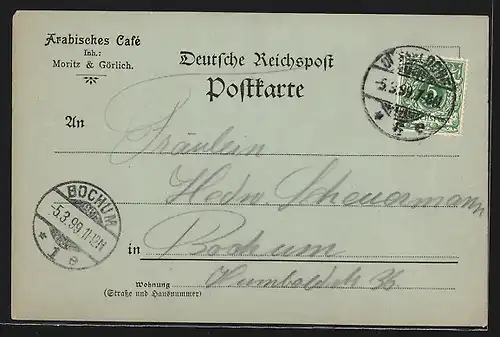 Arabisches Café
Inh.:
Moritz & Görlich.
Deutsche Reichspost
Postkarte
5.3.99
An
Fräulein
Hedw. Scheuermann
BOCHUM
5.3.99 11-12N
* 1 e
in Bochum
Wohnung
(Straße und Hausnummer)
Humboldstr.